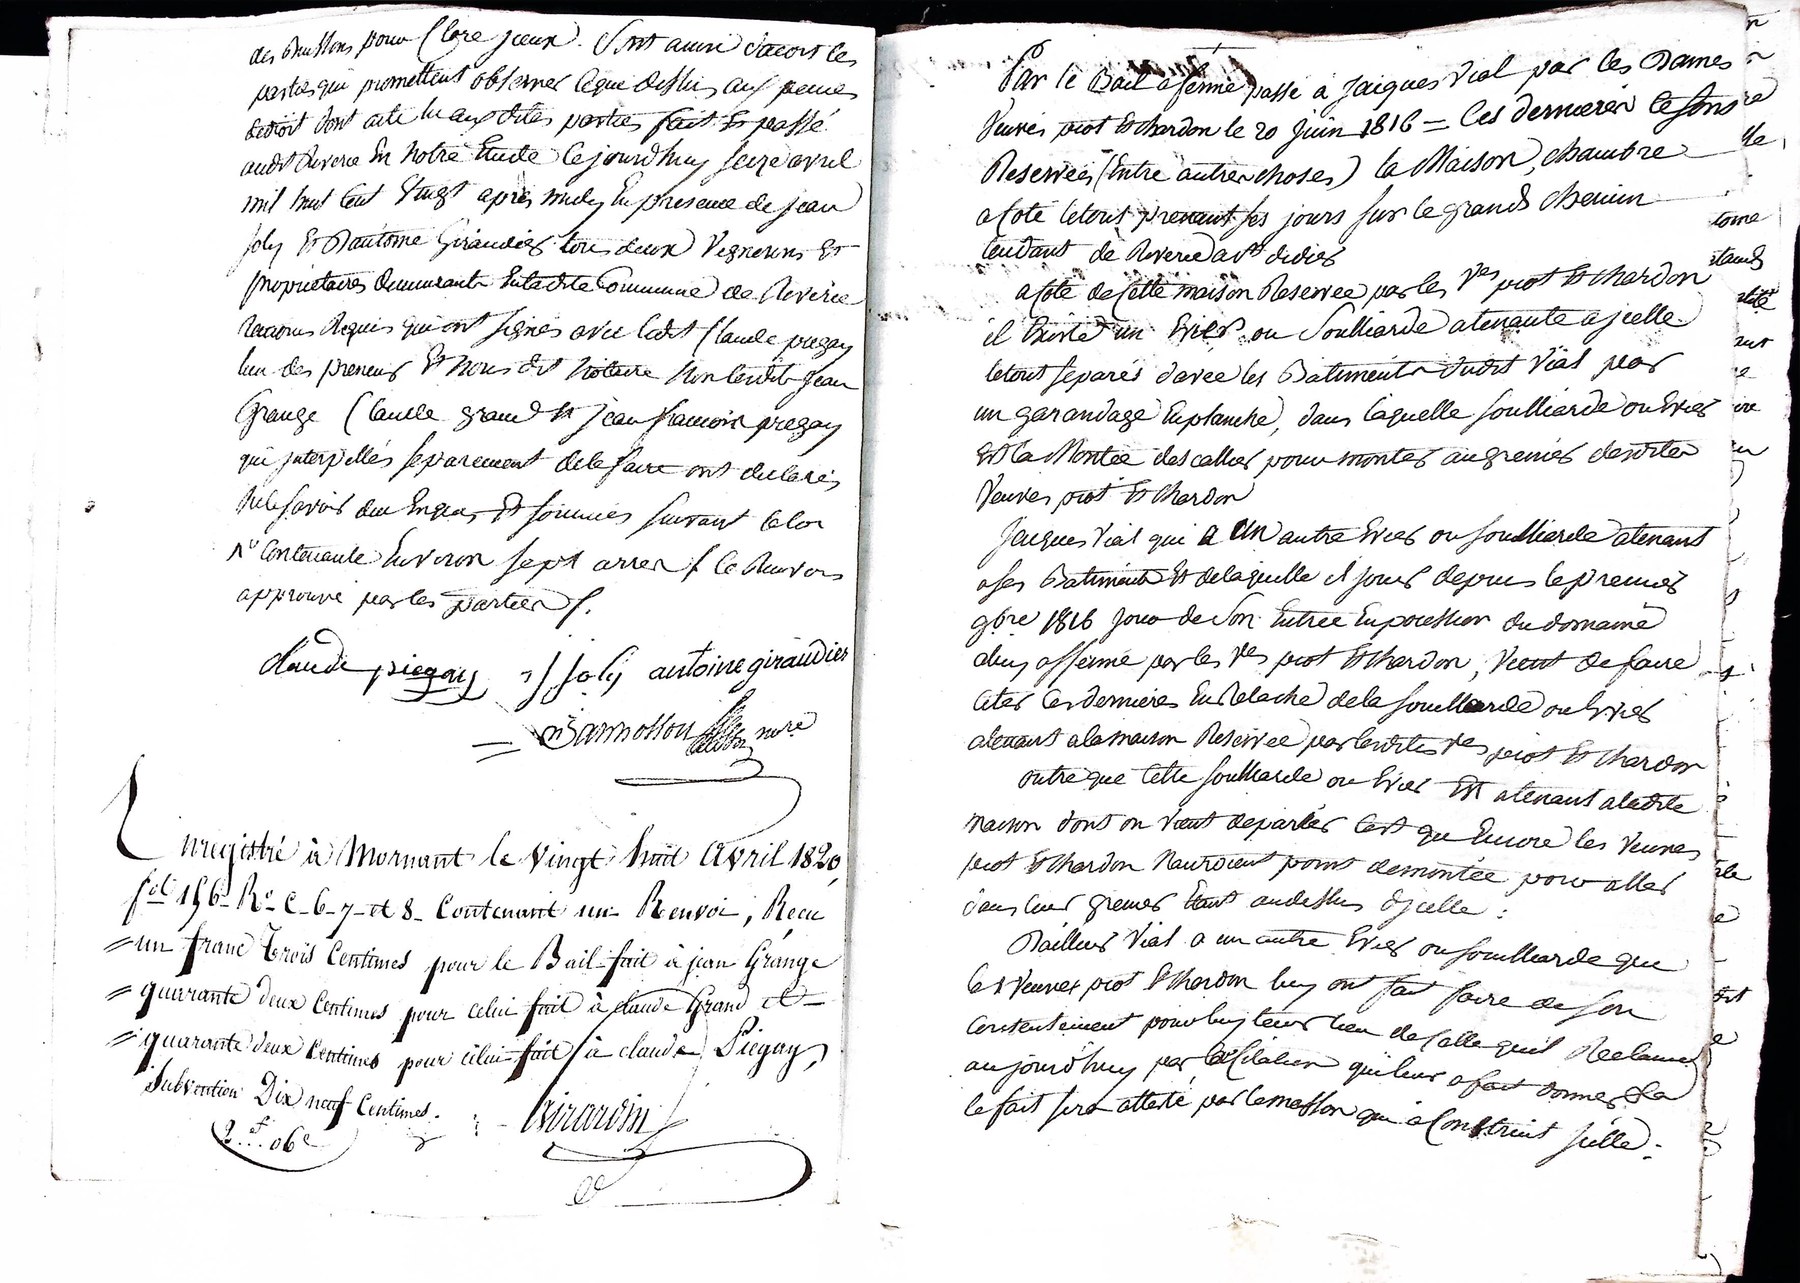 des Buissons pour Clore jceux. Sont aussi d'acort les
parties qui promettent observer ceque dessus aux peines
dedroit dont acte lu aux dites parties fait Et passé
audit Riverie En Notre Etude Cejourd'huy seize avril
mil huit Cent Vingt après midy En présence de jean
joly Et D'antoine Giraudier tous deux Vignerons Et
propriétaires demeurants Enladite Commune de Riverie
témoins Requis qui ont signés avec ledit Claude piegay
lun des preneurs Et Nous dit Notaire Non lesdits jean
Grange Claude grand Et jean francois piegay
qui jnterpellés separement dele faire ont declarés
Nelesavoir dece Enquis Et sommés suivant la loi
Contenante Environ sept arres / le Renvois
approuvé par les parties /.
claude piegay joly antoine giraudier
nre
Enregistré à Mornant le Vingt huit Avril 1820,
fol 156 Ro C. 6-7-et 8- Contenant un Renvoi, Reçu
un franc Trois Centimes pour le Bail fait à jean Grange
quarante deux Centimes pour celui fait à claude Grand et
quarante deux Centimes pour celui fait à claude Piegay,
Subvention Dix neuf Centimes.
2 f. 06 c
Girardin
Par le Bail a ferme passé a Jacques Vial par les Dames
Veuves piot Et chardon le 20 Juin 1816 = Ces dernieres Ce sons
Reservées (Entre autres choses) la Maison, chambre
a Coté letout prenant ses jours sur le grand chemin
tendant de Riverie a St didier
a Coté de Cette maison Reservée par les Ves piot Et chardon
il Existe un Evier ou Soulliarde atenante a jcelle
letout separés d'avec les Batiments dudit Vial par
un garandage En planche, dans laquelle soulliarde ou Evier
Est la Montée descallier pour monter au grenier desdites
Veuves piot Et chardon
Jacques Vial qui a un autre Evier ou soulliarde atenant
a ses Batiments Et delaquelle il jouis depuis le premier
9bre 1816 jour de Son Entrée En possession du domaine
aluy affermé par les Ves piot Et chardon, Vient de faire
Citer Ces dernieres En Relache dela soulliarde ou Evier
atenant ala maison Reservée par lesdites Ves piot Et chardon
outre que Cette soulliarde ou Evier Est atenant aladite
maison dont on Vient deparler C'est qu'Encore les Veuves
piot Et chardon N'auroient point demontée pour aller
dans leur grenier Etant au dessus d'jcelle :
D'ailleurs Vial a un autre Evier ou soulliarde que
les Veuves piot Et chardon luy ont fait faire de son
Consentement pour luy tenir lieu de Celle quil Reclame
aujourd'huy par la Citation qu'il leur a fait donner
le fait sera attesté par lemasson qui a Construit jcelle.